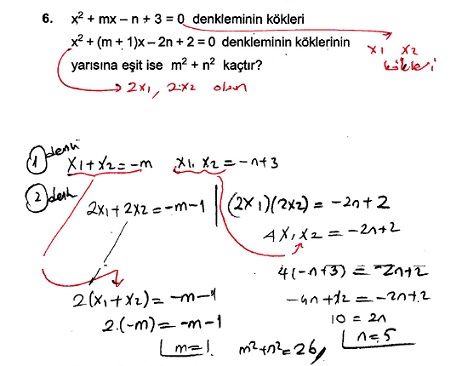 6. x² + mx – n + 3 = 0 denkleminin kökleri
x² + (m + 1)x – 2n + 2 = 0 denkleminin köklerinin
yarısına eşit ise m² + n² kaçtır?
x₁ x₂
kökleri
2x₁, 2x₂ olsun
1 denk
x₁ + x₂ = -m x₁. x₂ = -n+3
2 denk
2x₁ + 2x₂ = -m-1 (2x₁)(2x₂) = -2n+2
4x₁x₂ = -2n+2
4(-n+3) = -2n+2
2(x₁+x₂) = -m-1 -4n+12 = -2n+2
2.(-m) = -m-1 10 = 2n
m=1. m²+n²=26, n=5